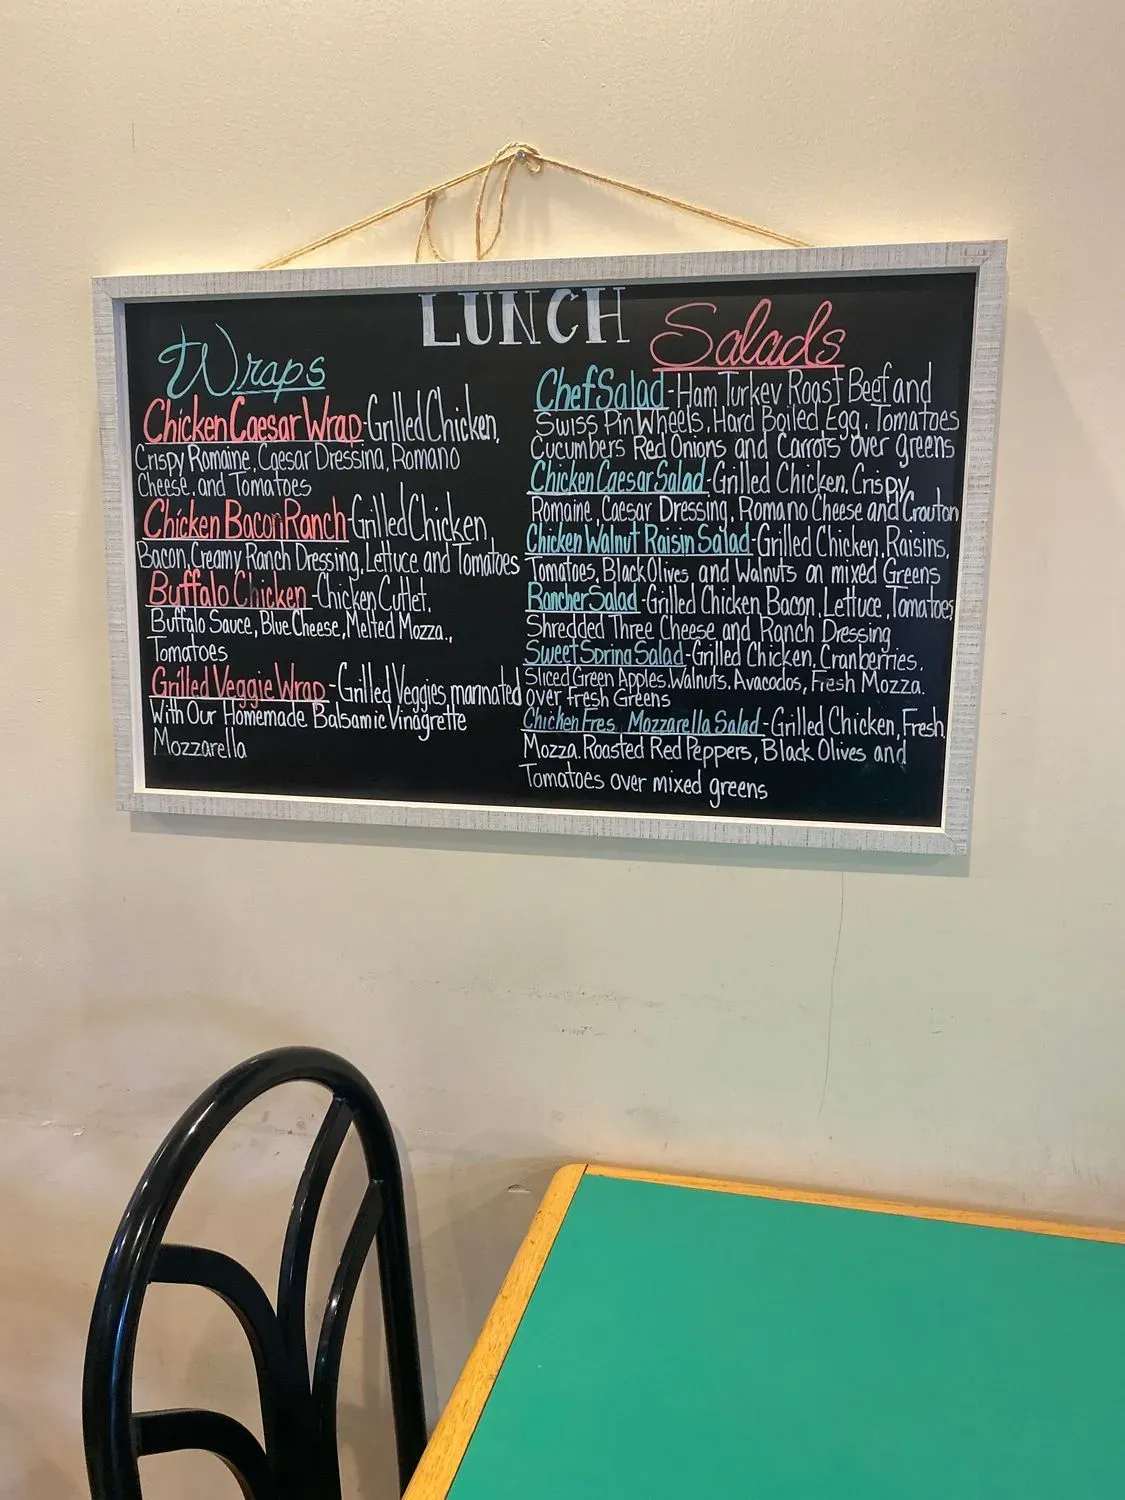 LUNCH
Wraps
Chicken Caesar Wrap-Grilled Chicken,
Crispy Romaine, Caesar Dressing, Romano
Cheese, and Tomatoes
Chicken Bacon Ranch-Grilled Chicken,
Bacon, Creamy Ranch Dressing, Lettuce and Tomatoes
Buffalo Chicken-Chicken Cutlet,
Buffalo Sauce, Blue Cheese, Melted Mozza.,
Tomatoes
Grilled Veggie Wrap-Grilled Veggies, marinated
With Our Homemade Balsamic Vinagrette
Mozzarella
Salads
Chef Salad-Ham Turkey Roast Beef and
Swiss Pin Wheels, Hard Boiled Egg, Tomatoes
Cucumbers Red Onions and Carrots over greens
Chicken Caesar Salad-Grilled Chicken, Crispy
Romaine, Caesar Dressing, Romano Cheese and Crouton
Chicken Walnut Raisin Salad-Grilled Chicken, Raisins,
Tomatoes, Black Olives and Walnuts on mixed Greens
Rancher Salad-Grilled Chicken, Bacon, Lettuce, Tomatoes,
Shredded Three Cheese and Ranch Dressing
Sweet Spring Salad-Grilled Chicken, Cranberries,
Sliced Green Apples, Walnuts, Avacados, Fresh Mozza.
over Fresh Greens
Chicken Fres Mozzarella Salad-Grilled Chicken, Fresh
Mozza. Roasted Red Peppers, Black Olives and
Tomatoes over mixed greens